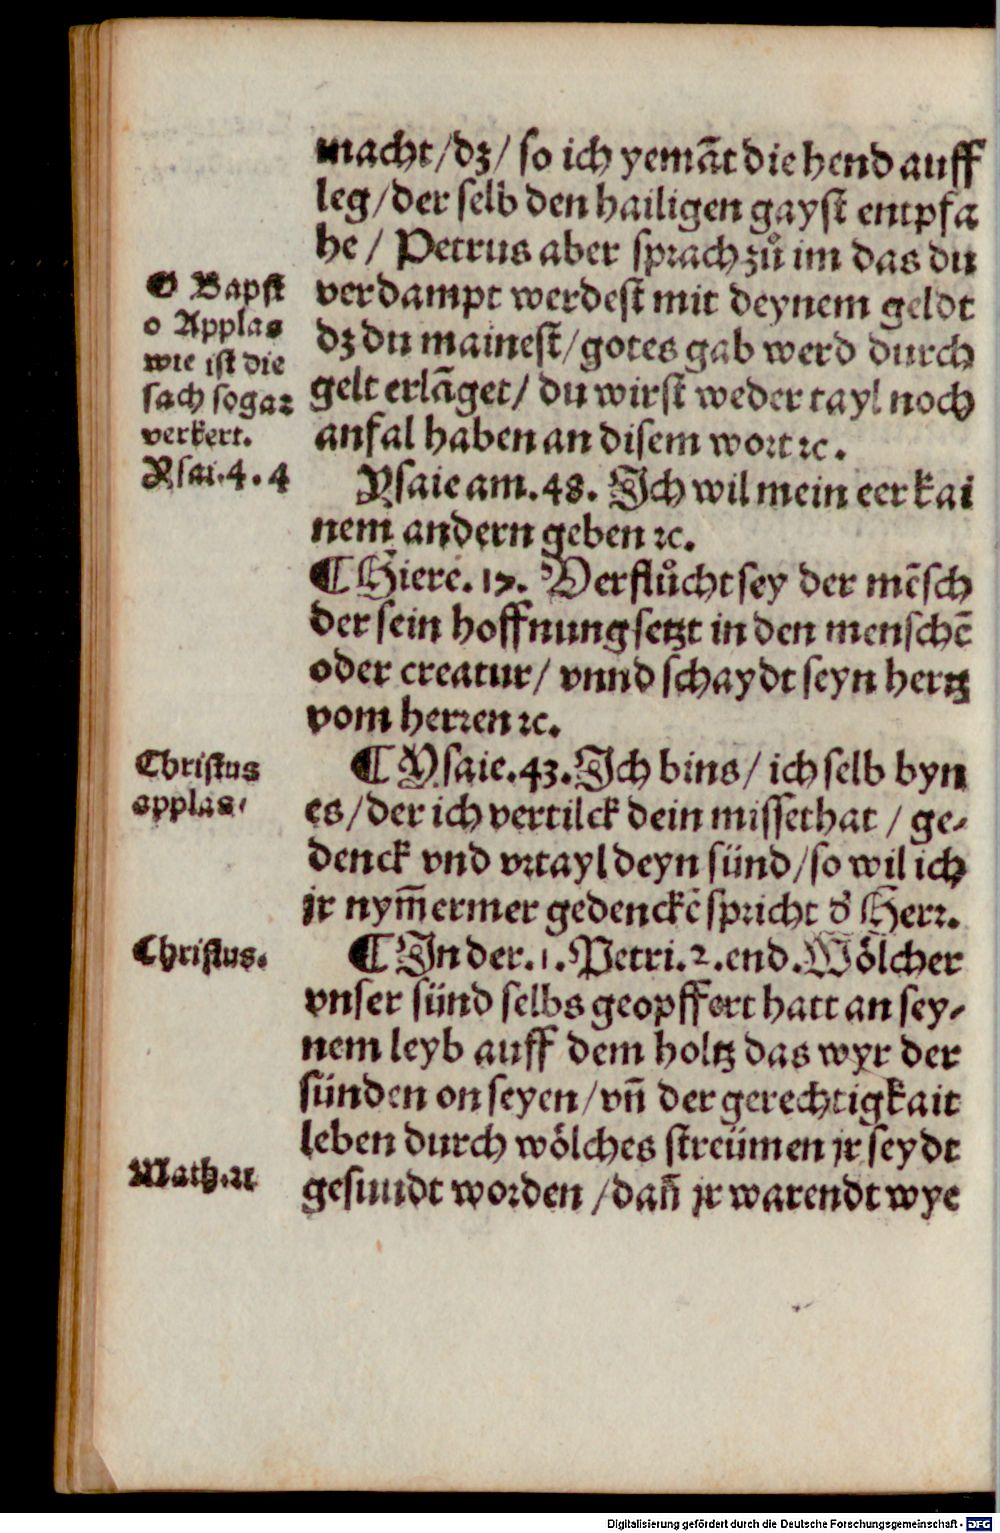 macht/dz/ so ich yemāt die hend auff
leg/der selb den hailigen gayst entpfa
he / Petrus aber sprach zuͦ im das du
verdampt werdest mit deynem geldt
dz du mainest/gotes gab werd durch
gelt erlāget/ du wirst weder tayl noch
anfal haben an disem wort ⁊c.
O Bapst
o Applas
wie ist die
sach sogar
verkert.
Ysai.4.4
Ysaie am.48. Ich wil mein eer kai
nem andern geben ⁊c.
¶ Hiere. 17. Verfluͦcht sey der mēsch
der sein hoffnung setzt in den menschē
oder creatur/ vnnd schaydt seyn hertz
vom herren ⁊c.
Christus
applas.
¶ Ysaie.43. Ich bins/ ich selb byn
es/der ich vertilck dein missethat / ge⸗
denck vnd vrtayl deyn sünd/so wil ich
jr nym̄ermer gedenckē spricht d̛ Herr.
Christus.
¶ In der.1. Petri.2.end. Woͤlcher
vnser sünd selbs geopffert hatt an sey⸗
nem leyb auff dem holtz das wyr der
sünden on seyen/vn̄ der gerechtigkait
leben durch woͤlches streümen jr seydt
Math.21
gesundt worden /dan̄ jr warendt wye
Digitalisierung gefördert durch die Deutsche Forschungsgemeinschaft - DFG